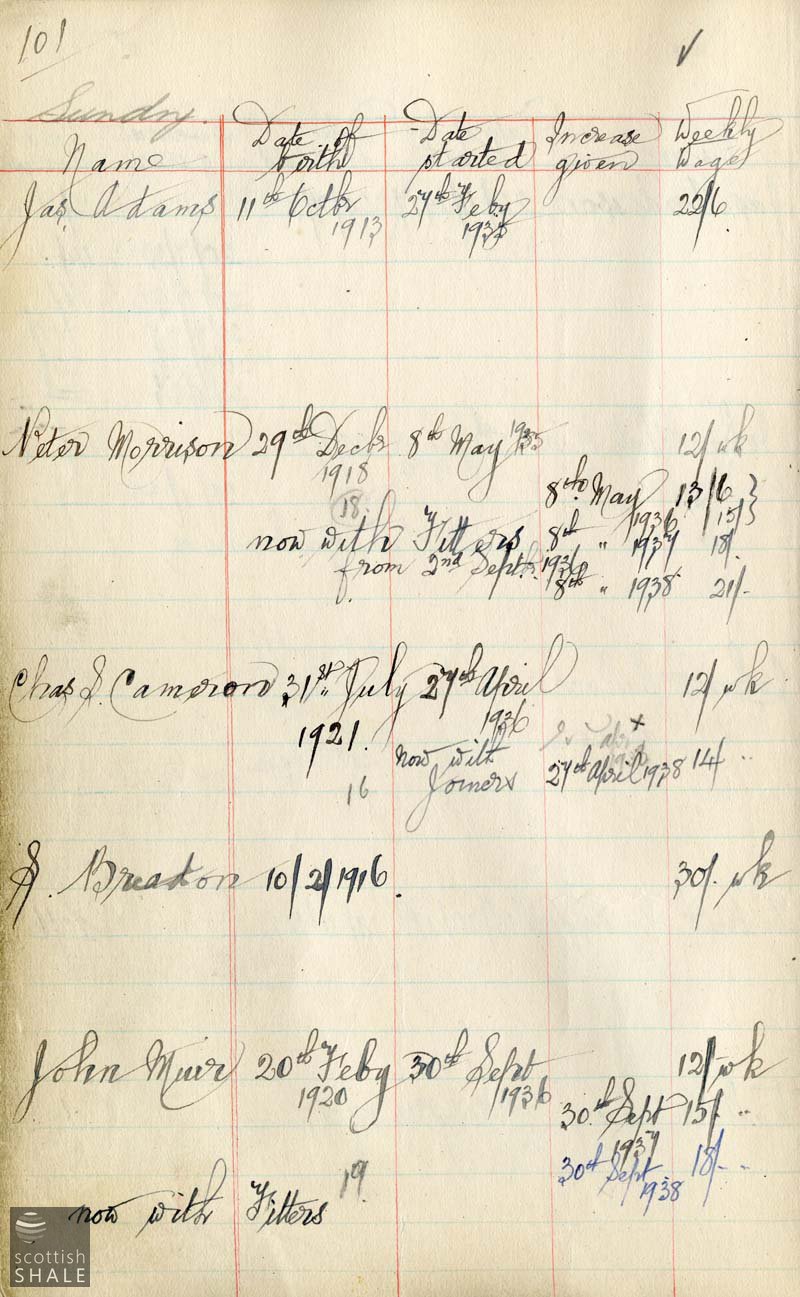 101 ✓
Sundry.
Name Date of birth Date started Increase given Weekly Wage
Jas. Adams 11th Octbr 1913 27th Feby 1935 22/6
Peter Morrison 29th Decbr 1918 8th May 1935 12/ wk
18.
8th May 1936 13/6 } 15/ }
now with Fitters 8th " 1937 18/.
from 2nd Septr. 1936
8th " 1938 21/-
Chas J. Cameron 31st July 1921. 27th April 1936 12/ wk
x
now with Joiners 27th April 1938 14/ "
16
J. Breadon 10/2/1916. 30/. wk
John Muir 20th Feby 1920 30th Sept 1936 12/ wk
30th Sept 1937 15/- "
19 30th Sept 1938 18/- "
now with Fitters
scottish
SHALE